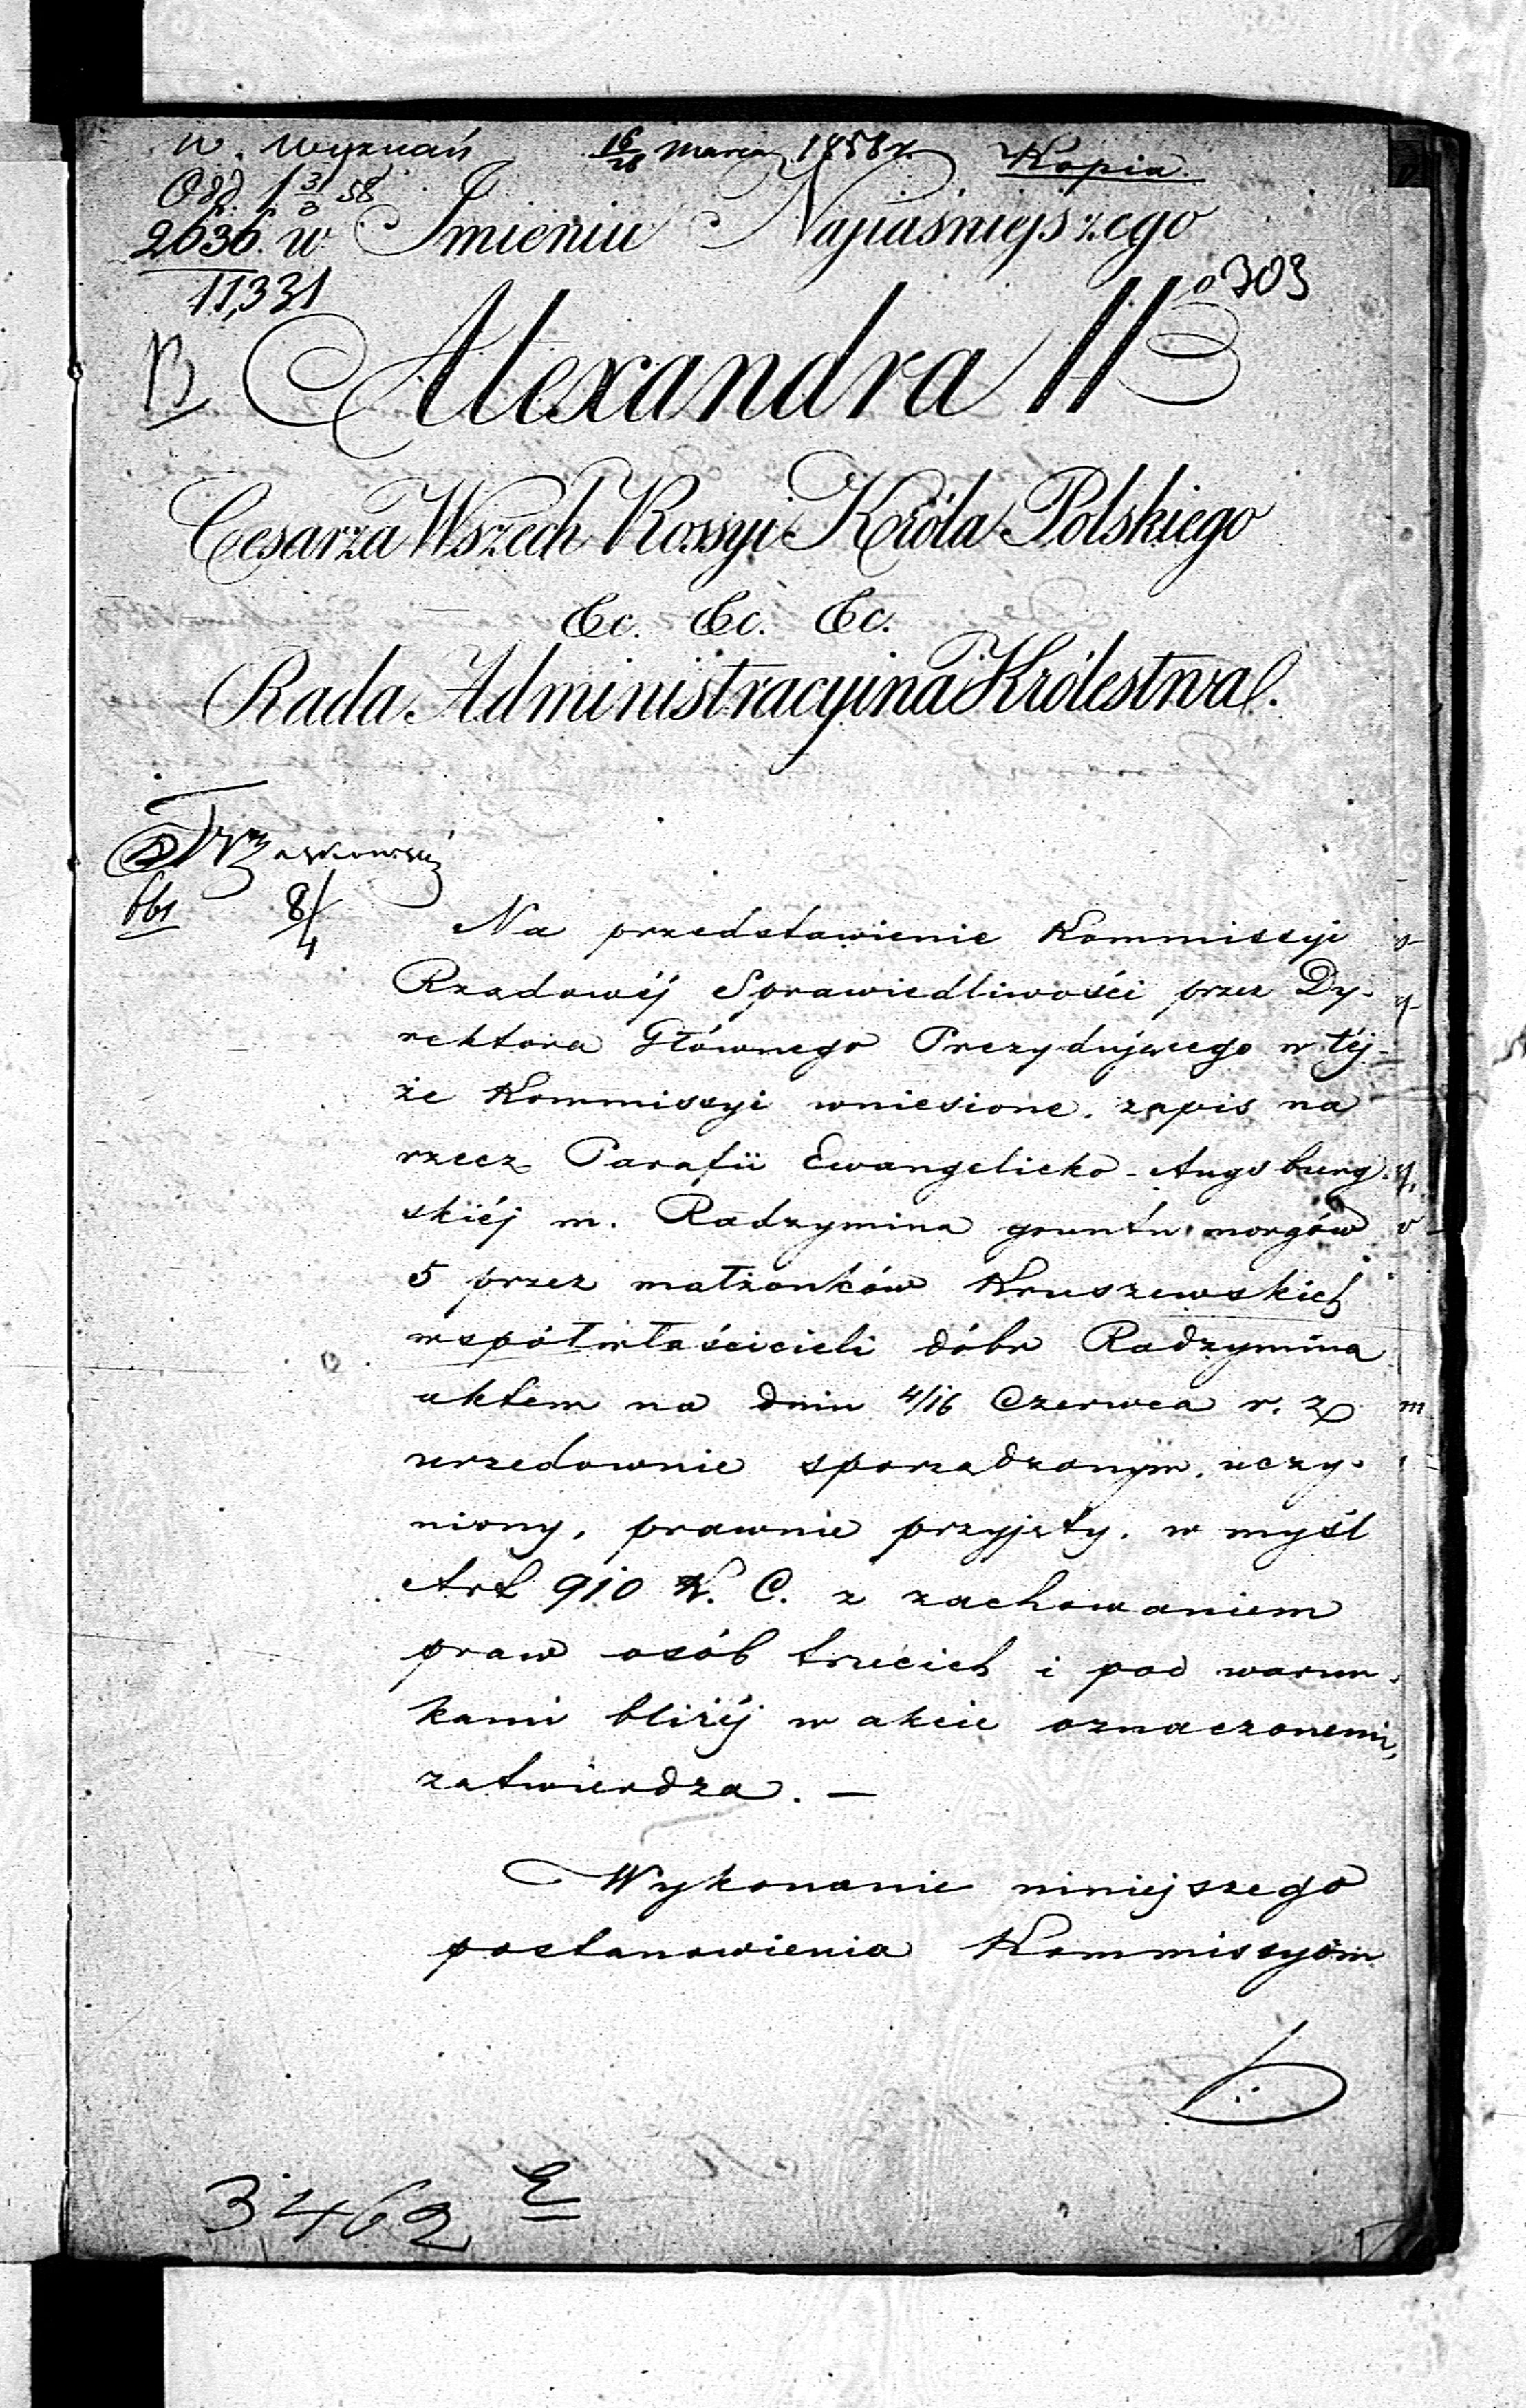 W. Wyznań 16/28 Marca 1858 r. Kopia.
Odd. 1 31/3 58
2636. w Imieniu Najiaśniejszego
11,331
303
Alexandra IIo
B
Cesarza Wszech Rossyi Króla Polskiego
Ec. Ec. Ec.
Rada Administracyina Królestwa.
Trzaskowski
8/4
Na przedstawienie Kommissyi
Rządowéj Sprawiedliwości przez Dy-
rektora Głównego Prezydującego w téj-
że Kommissyi wniesione, zapis na
rzecz Parafii Ewangelicko-Augsburg-
skiéj m. Radzymina gruntu morgów
5 przez małżonków Kruszewskich
współwłaścicieli dóbr Radzymina
aktem na dniu 4/16 Czerwca r. z.
urzędownie sporządzonym, uczy-
niony, prawnie przyjęty, w myśl
Art 910 K. C. z zachowaniem
praw osób trzecich i pod warun-
kami bliżéj w akcie oznaczonemi,
zatwierdza. —
Wykonanie niniejszego
postanowienia Kommissyom
3462 E